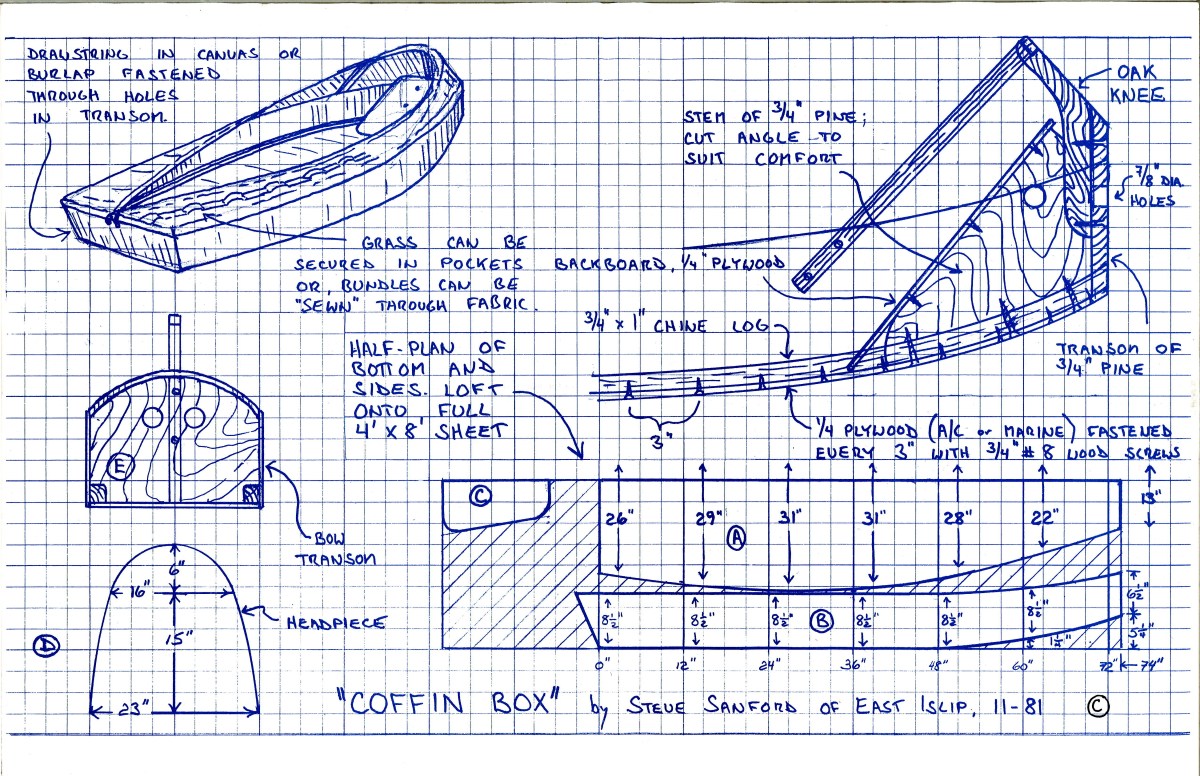 DRAWSTRING IN CANVAS OR
BURLAP FASTENED
THROUGH HOLES
IN TRANSOM.
GRASS CAN BE
SECURED IN POCKETS
OR, BUNDLES CAN BE
"SEWN" THROUGH FABRIC.
STEM OF 3/4" PINE;
CUT ANGLE TO
SUIT COMFORT
OAK
KNEE
7/8" DIA.
HOLES
BACKBOARD, 1/4" PLYWOOD
3/4" x 1" CHINE LOG
TRANSOM OF
3/4" PINE
3"
1/4 PLYWOOD (A/C or MARINE) FASTENED
EVERY 3" WITH 3/4" #8 WOOD SCREWS
HALF-PLAN OF
BOTTOM AND
SIDES. LOFT
ONTO FULL
4' X 8' SHEET
E
BOW
TRANSOM
6"
16"
15"
HEADPIECE
D
23"
C
26"
29"
31"
31"
28"
22"
13"
A
8 1/2"
8 1/2"
8 1/2"
B
8 1/2"
8 1/2"
8 1/2"
6 1/2"
1 1/4"
5 1/4"
0"
12"
24"
36"
48"
60"
72"
74"
"COFFIN BOX" by STEVE SANFORD OF EAST ISLIP, 11-81 ©